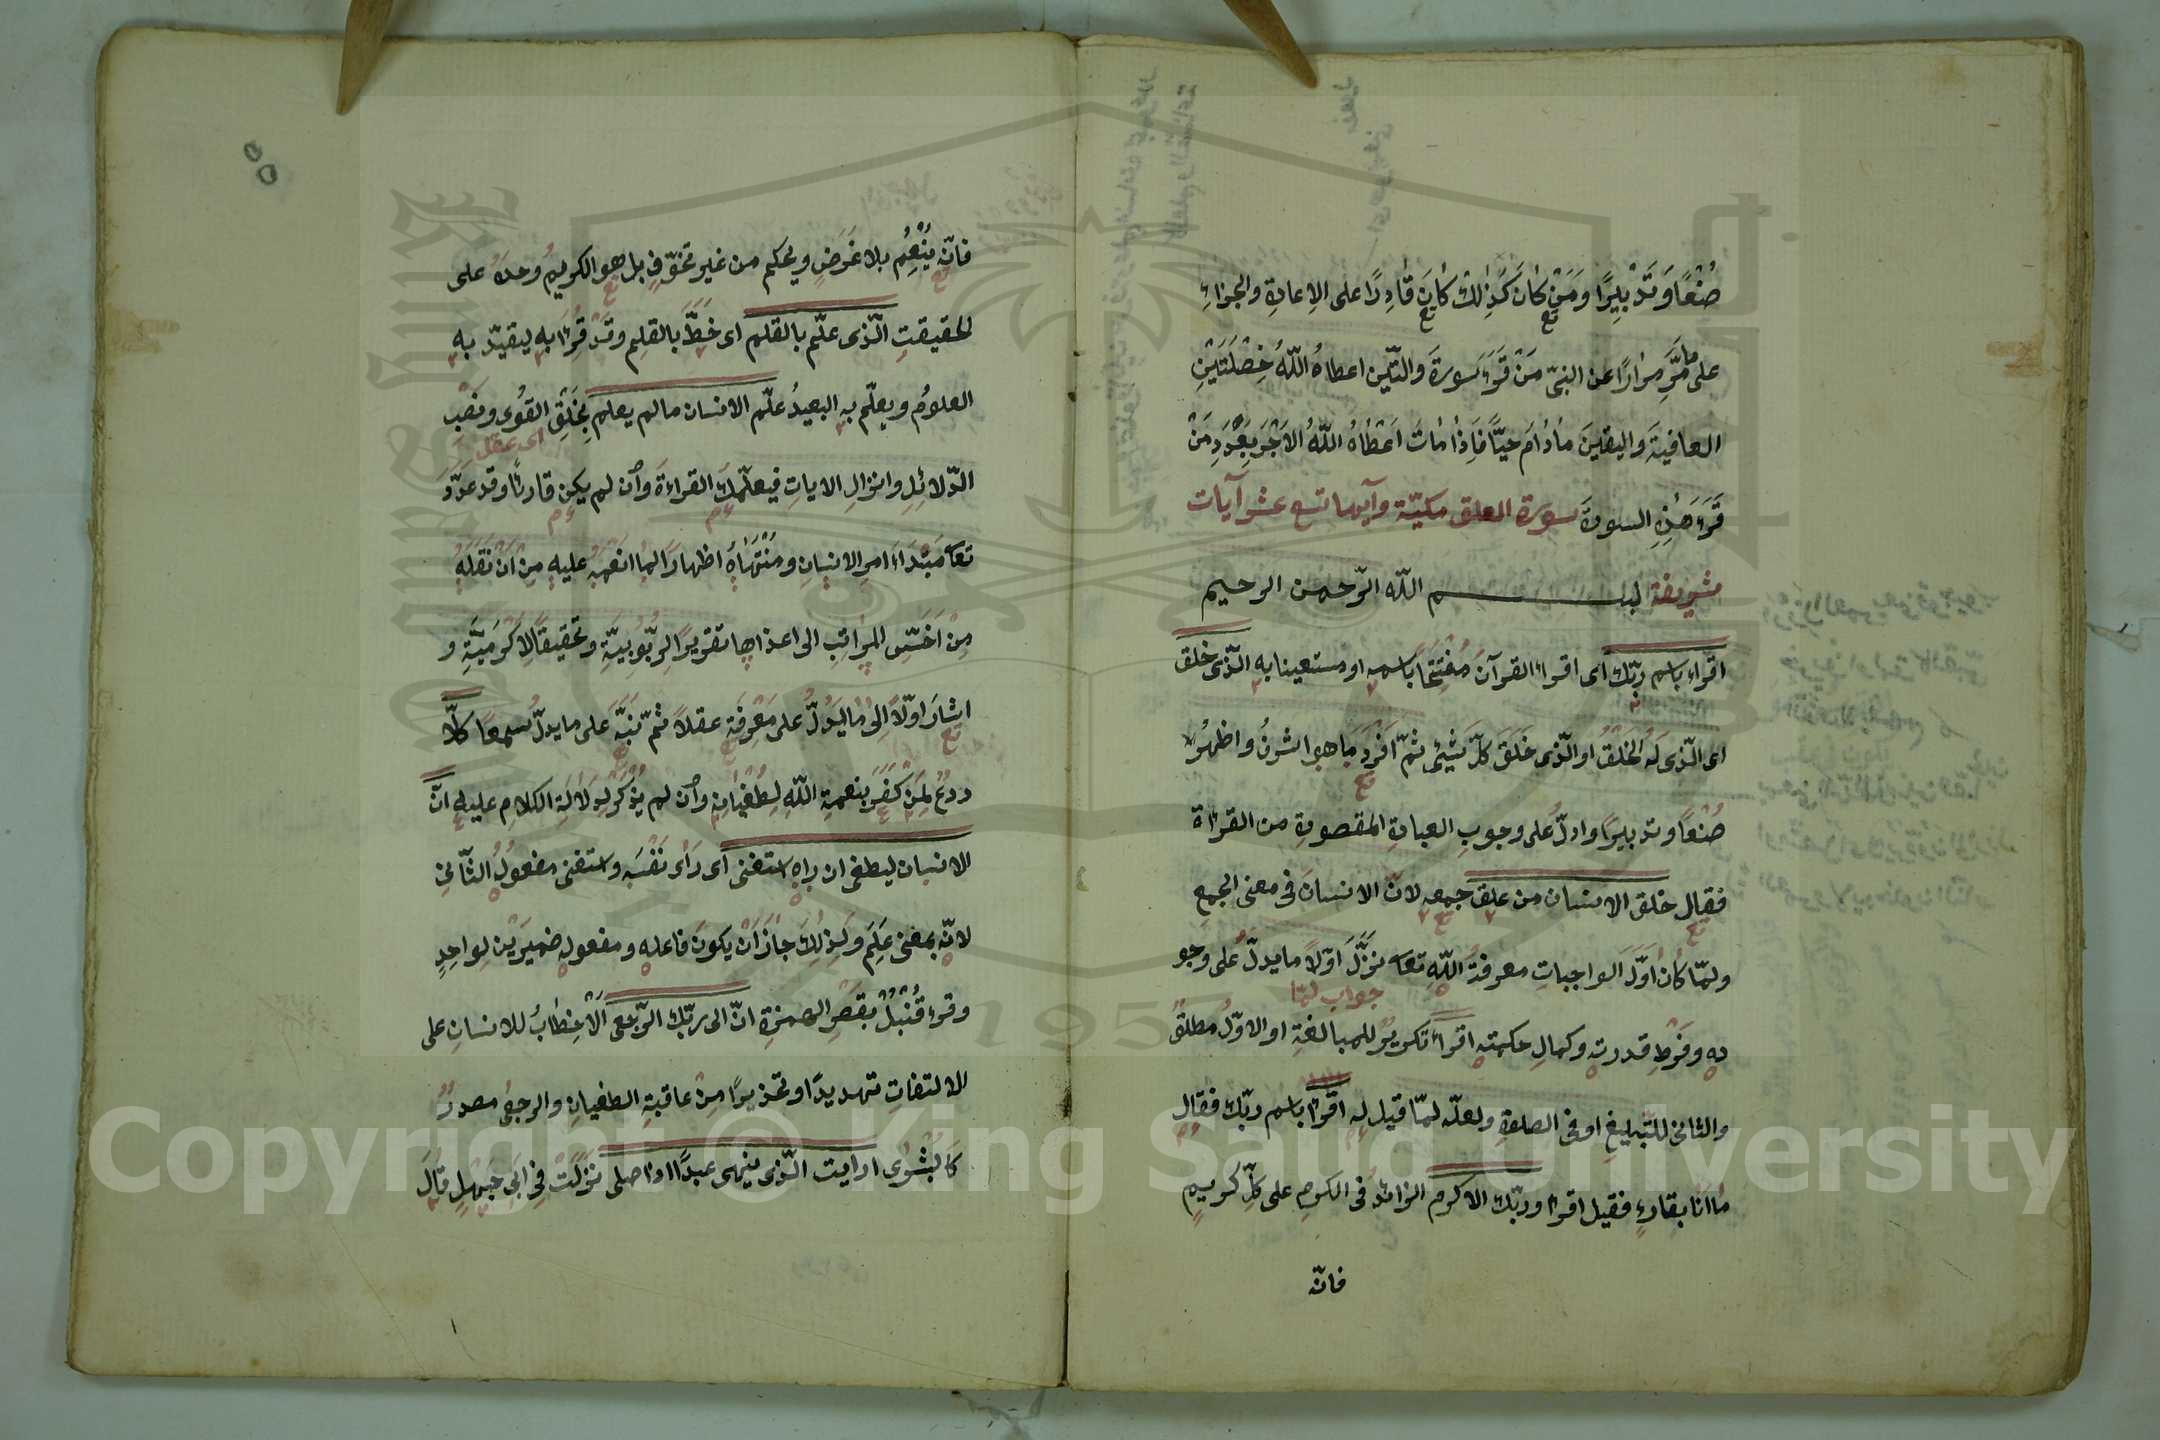 صُنْعًا وَتَدْبِيرًا وَمَنْ كَانَ كَذَٰلِكَ كَانَ قَادِرًا على الاِعادةِ والجزاءِ
على مَا مَرَّ مِرارًا عن النبىّ مَنْ قَرَءَ سورةَ والتّين اعطاهُ اللّٰهُ خِصْلَتَيْنِ
العافيةَ واليقينَ مادَامَ حيًّا فَاِذَا مَاتَ اَعْطَاهُ اللّٰهُ الاَجْرَ بِعَدَدِ مَنْ
قَرَءَ هٰذِهِ السورةَ سورة العلق مكيّة وآيها تسع عشر آيات
شريفة بســـم اللّٰه الرّحمن الرحيم
اقراء باسم ربّك اى اقراء القرآنَ مُفْتِتِحًا باسمه او مستعينا به الّذى خلق
اى الّذى لَهُ الخَلْقُ او الّذى خَلَقَ كلَّ شيْئٍ ثمّ اَفْرَدَ ما هو اشرفُ واظهرُ
صُنْعًا وتدبيرًا وادلُّ على وجوبِ العبادةِ المقصودةِ من القراءة
فقال خلق الانسان من علق جمعه لانّ الانسانَ فى معنى الجمعِ
ولمّا كانَ اوّلَ الواجباتِ معرفةُ اللّٰهِ تعا نَزَّلَ اوّلاً ما يدلُّ على وجو
جواب لمّا
دِهِ وفَرْطِ قدرتِه وكمالِ حكمتِه اقراء تكريرٌ للمبالغةِ او الاوّلُ مطلقٌ
والثانى للتّبليغِ او فى الصلوةِ ولعلّه لمّا قيل له اقراْ باسم ربّك فقال
ما انا بقارءٍ فقيل اقراْ وربّك الاكرم الزائدُ فى الكرمِ على كلِّ كريمٍ
فانّه
فانّه يُنْعِمُ بلا غَرَضٍ ويحكم من غير تخوّفٍ بل هو الكريمُ وحدَهُ على
الحقيقتِ الّذى علّم بالقلم اى خَطَّ بالقلِم وقَدْ قُرِاَ به ليقيّد به
العلومُ ويعلّم به البعيدُ علّم الانسان مالم يعلم بِخَلْقِ القُوٰى ونَصْبِ
اى عقل
الدّلائِلِ وانزالِ الاياتِ فيعلّمكَ القراءةَ وان لم يكن قارئًا وقد عدّدَ
تعا مَبْدَاءَ امرِ الانسانِ ومُنْتَهَاهُ اظهارًا لِما انعَمَهُ عليهِ مِنْ اَنْ نَقَلَهُ
مِنْ اَخَسِّ المَراتِبِ الى اعلاها تقريرًا لِرُبُوبِيَّةِ وتحقيقًا لِاَكْرَمِيَّةِ و
اشارَ اوّلاً اِلىٰ ما يَدُلُّ على مَعْرِفَةِ عقلاً ثمّ نَبَّهَ على ما يدلُّ سمعًا كلّا
ردعٌ لِمَنْ كَفَرَ بنعمةِ اللّٰهِ لِطُغْيانِهِ وان لم يذْكَرْ لِدَلالَةِ الكلامِ عليهِ انّ
الانسان ليطغى ان راه استغنى اى رَاٰى نَفْسَه واستغنى مفعولُهُ الثّانى
لانّه بمعنى عَلِمَ ولِذٰلِكَ جازَ اَنْ يكونَ فاعلُه ومفعولُه ضميرَيْن لِواحِدٍ
وقرء قُنْبُلُ بقَصْرِ الهمزةِ انّ الى ربّك الرّجعى اَلْخِطابُ للانسانِ على
الالتفاتِ تهديدًا وتحذيرًا مِنْ عاقبةِ الطغيانِ والرجعى مصدرٌ
كَالبُشْرٰى ارايت الّذى ينهى عبدًا اذا صلى نَزَلَتْ فِى اَبِى جَهْلٍ قَالَ